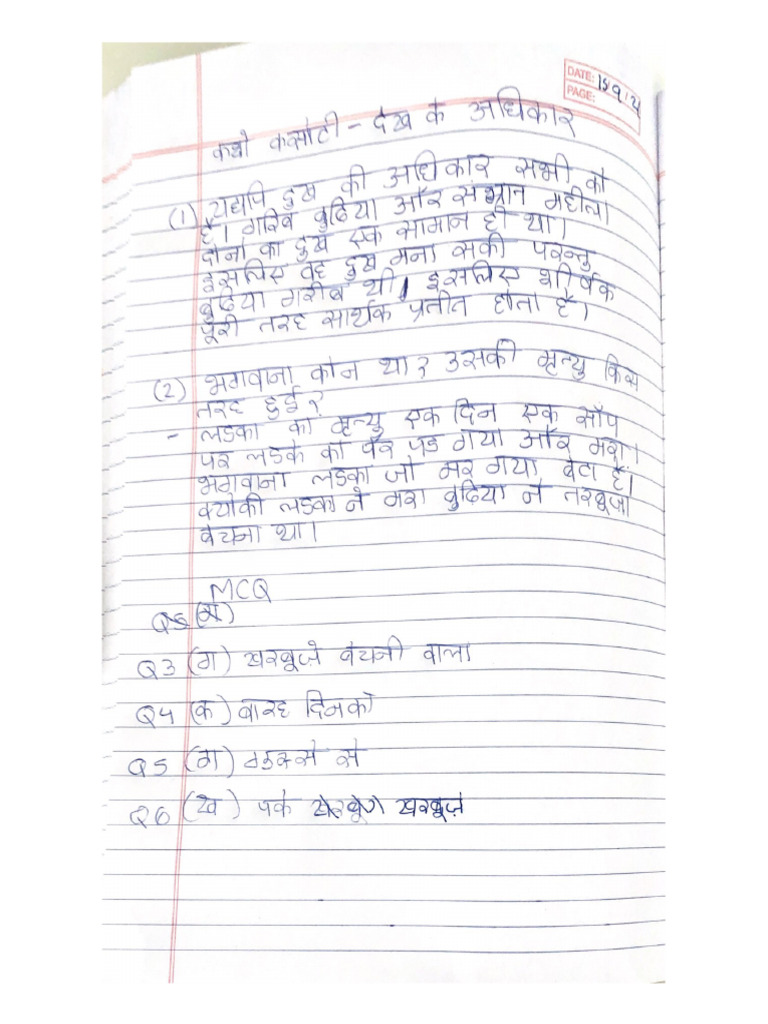 DATE: 15.9.2
PAGE:
कक्षा कसोटी - दुख के अधिकार
(1) यद्यपि दुख की अधिकार सभी को
है। गरिब बुढिया और संभ्रान महीला
दोनो का दुख एक सामान ही था।
इसलिए वह दुख मना सकी परन्तु
बुढिया गरीब थी। इसलिए शीर्षक
पूरी तरह सार्थक प्रतीत होता है।
(2) भगवाना कोन था? उसकी मृत्यु किस
तरह हुई?
- लडका का मृत्यु एक दिन एक साँप
पर लडके का पैर पड गया और मरा।
भगवाना लडका जो मर गया बेटा है।
क्योकी लडका ने मरा बुढिया ने तरबूजा
बेचना था।
MCQ
Q3 (ग) खरबूज़े बेचनी वाला
Q4 (क) बारह दिनको
Q5 (ग) से
Q6 (ख) पके खरबूज़े